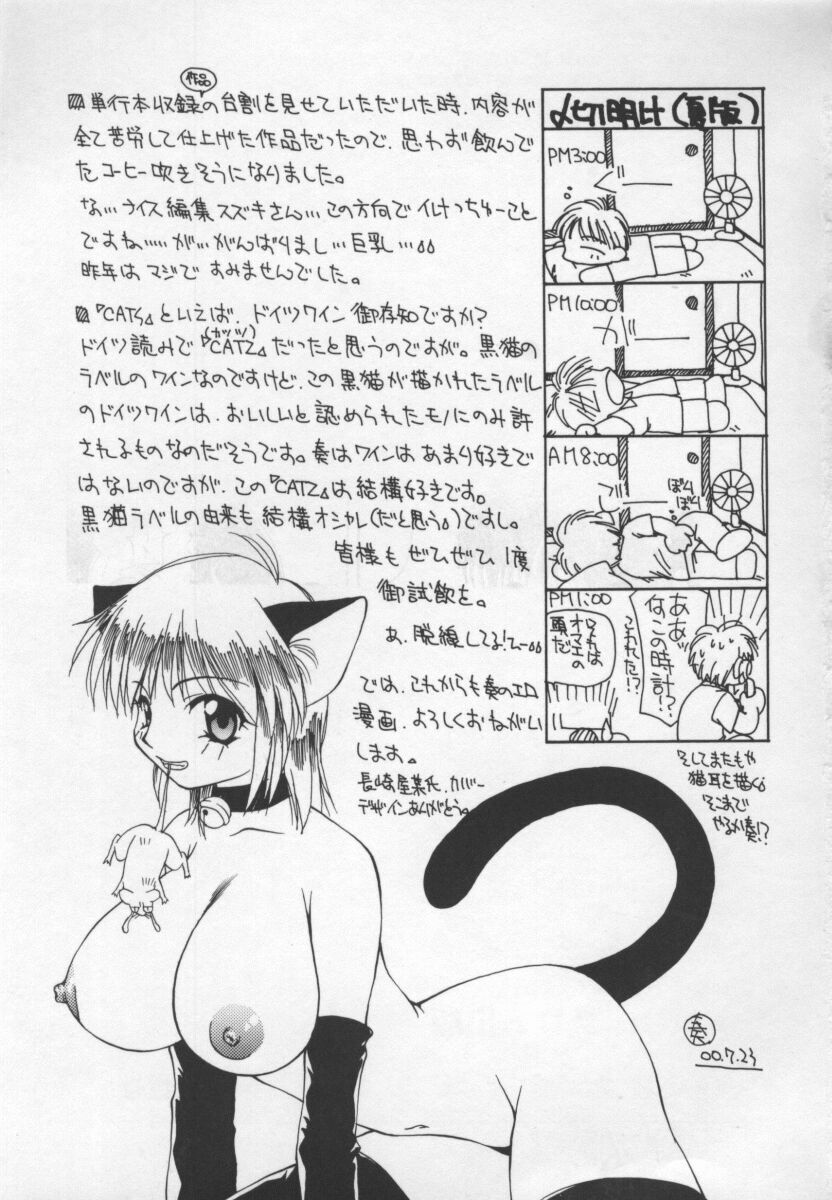 作品
単行本収録の台割を見せていただいた時、内容が
全て苦労して仕上げた作品だったので、思わず飲んで
たコーヒー吹きそうになりました。
な…ナイス編集スズキさん…この方向でイけっちゅーこと
ですね……が…がんばりまし…巨乳…
昨年はマジですみませんでした。
『CATS』といえば、ドイツワイン御存知ですか?
ドイツ読みで『CATZ』だったと思うのですが。黒猫の
(カッツ)
ラベルのワインなのですけど、この黒猫が描かれたラベル
のドイツワインは、おいしいと認められたモノにのみ許
されるものなのだそうです。奏はワインはあまり好きで
はないのですが、この『CATZ』は結構好きです。
黒猫ラベルの由来も結構オシャレ(だと思う。)ですし。
皆様もぜひぜひ1度
御試飲を。
あ、脱線してる!てー
では、これからも奏のエロ
漫画、よろしくおねがい
します。
長崎屋葉氏、カバー
デザインありがとう。
〆切明け(夏版)
PM3:00
PM10:00
AM8:00
ぼり
ぼり
PM1:00
ああッ
何この時計!?
こわれた!?
オマエの
頭だ
そしてまたもや
猫耳を描く。
そこまで
やるか奏!?
奏
00.7.23